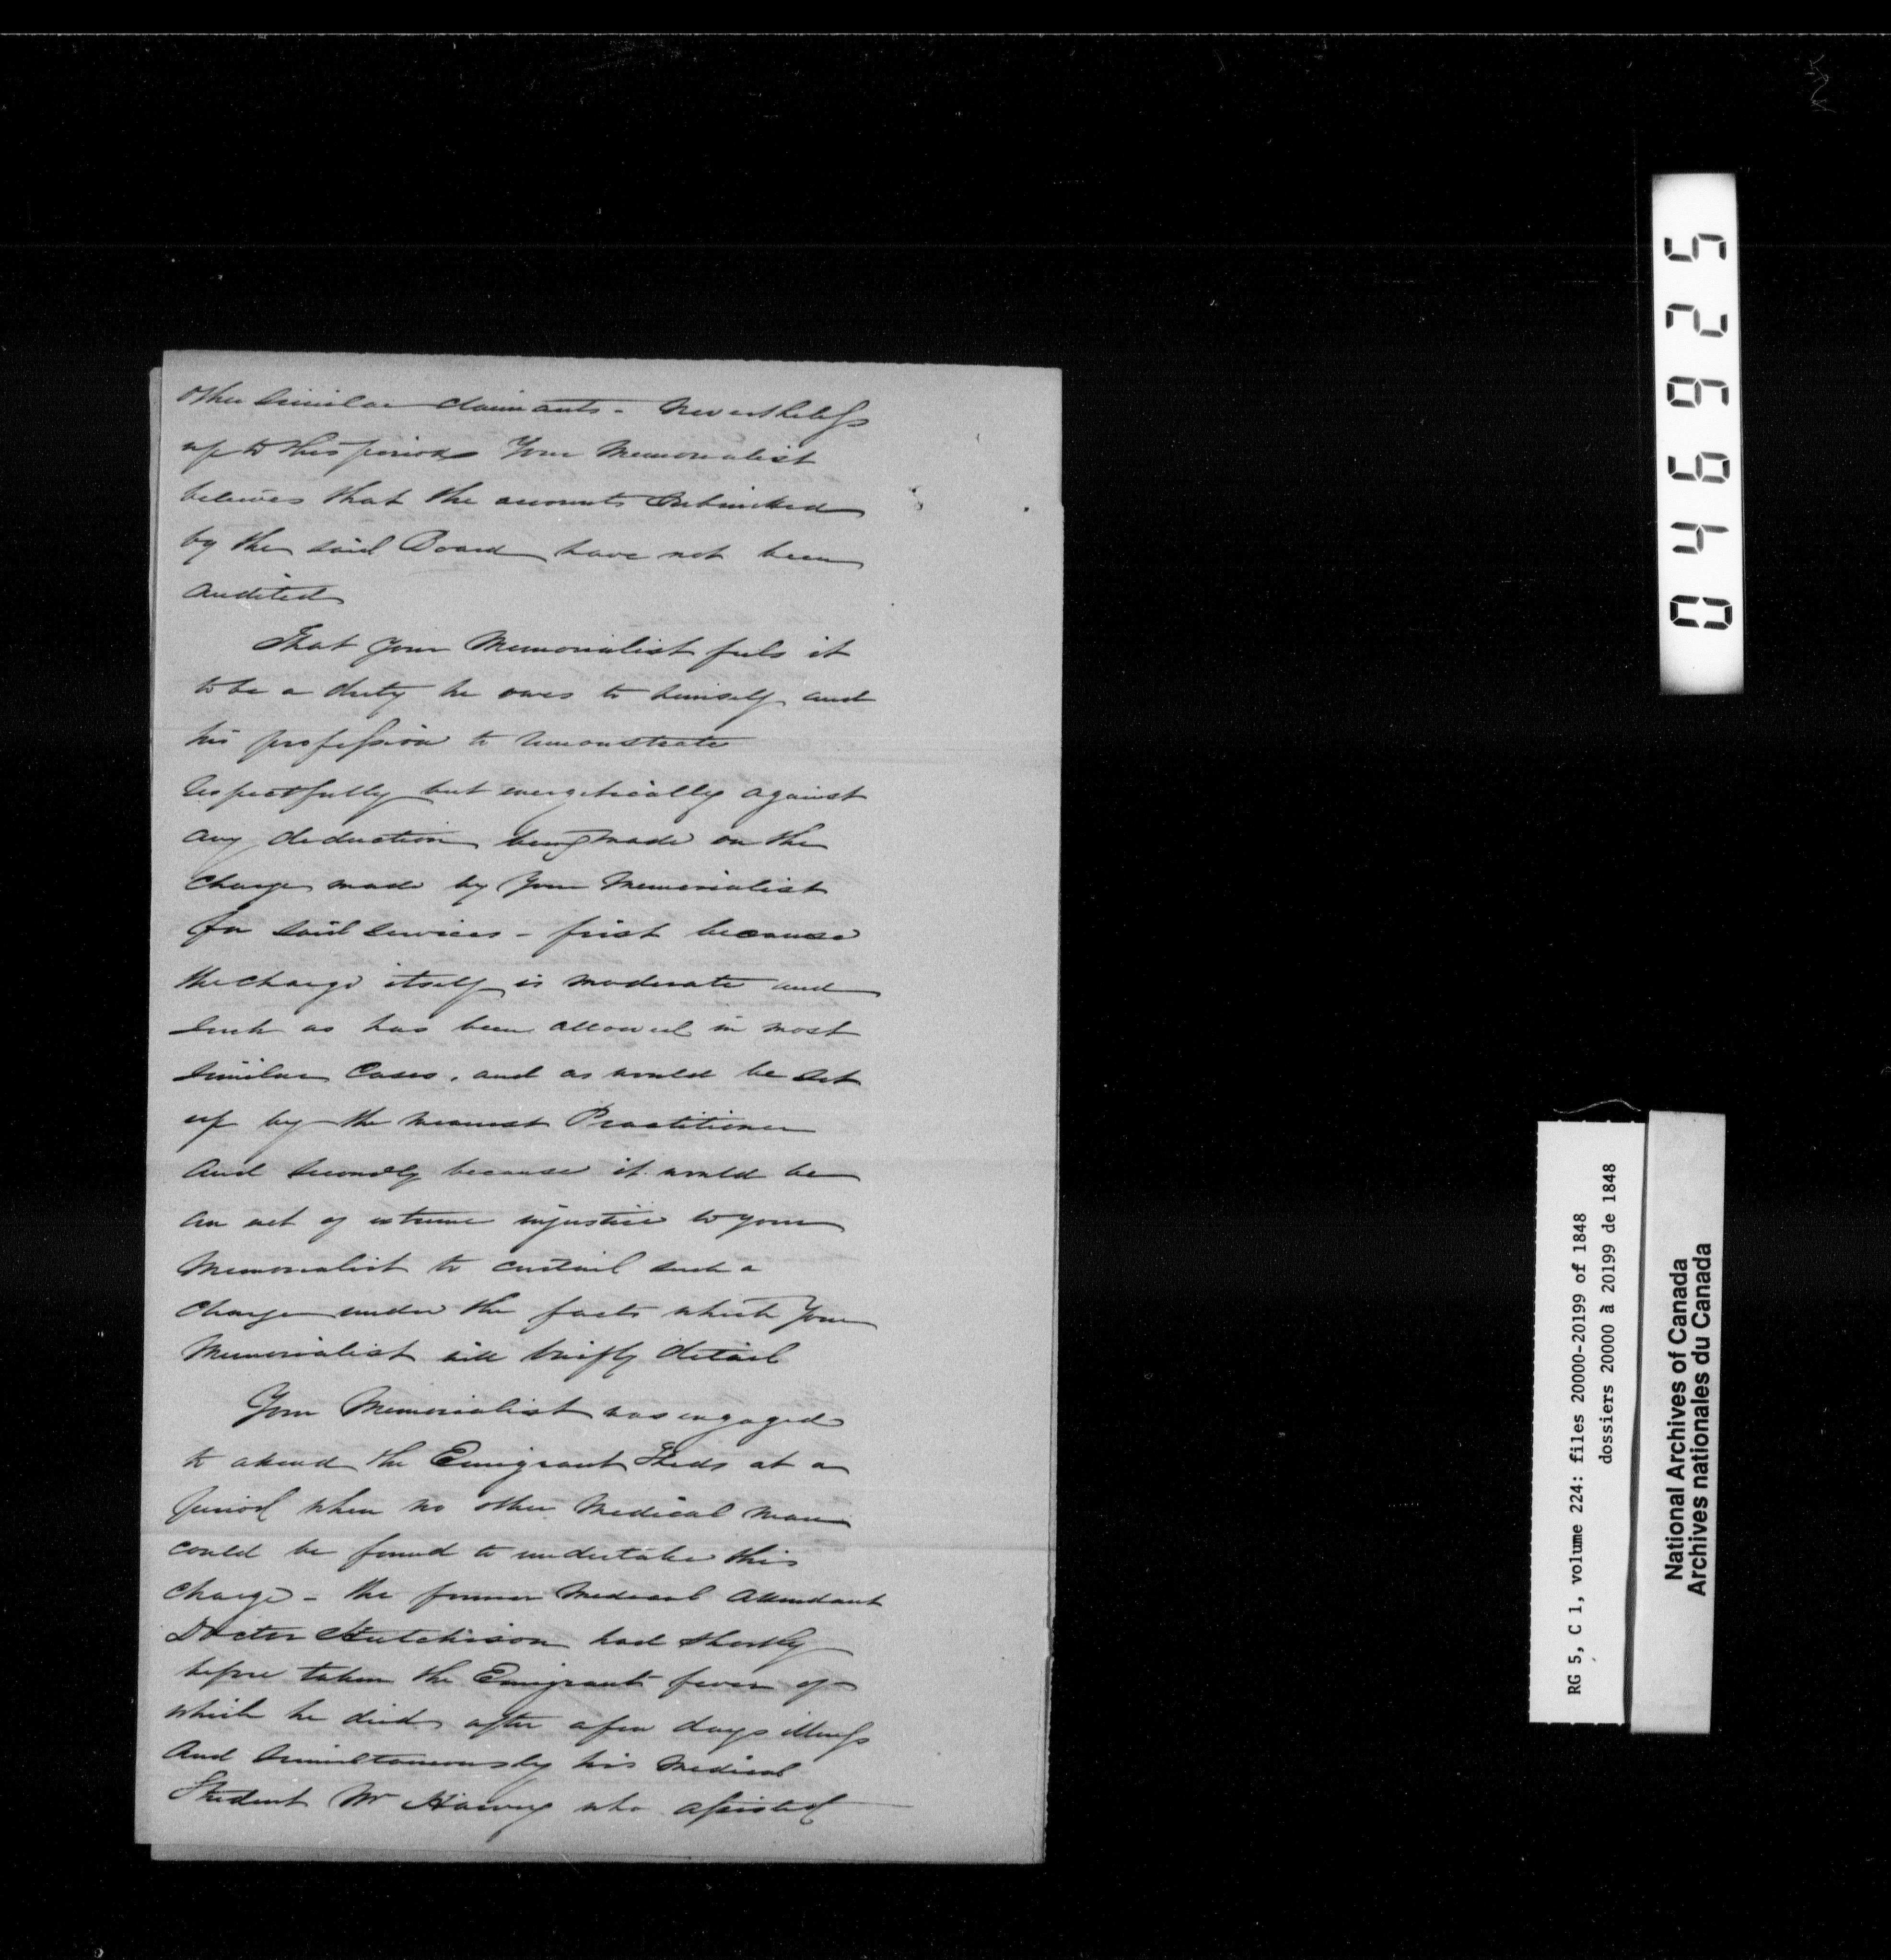 other similar claimants - Nevertheless
up to this period Your Memorialist
believes that the accounts submitted
by the said Board have not been
audited
That Your Memorialist feels it
to be a duty he owes to himself and
his profession to remonstrate
respectfully but energetically against
any deduction being made on the
charge made by Your Memorialist
for said services - first because
the charge itself is moderate and
such as has been allowed in most
similar Cases, and as would be set
up by the nearest Practitioner
and secondly because it would be
an act of extreme injustice to your
Memorialist to curtail such a
charge under the facts which Your
Memorialist will briefly detail
Your Memorialist was engaged
to attend the Emigrant Sheds at a
period when no other Medical man
could be found to undertake this
charge - the former Medical Attendant
Doctor Hutchison had shortly
before taken the Emigrant fever of
which he died after a few days illness
and simultaneously his Medical
Student Mr Harvey who assisted
046925
RG 5, C 1, volume 224: files 20000-20199 of 1848
dossiers 20000 à 20199 de 1848
National Archives of Canada
Archives nationales du Canada